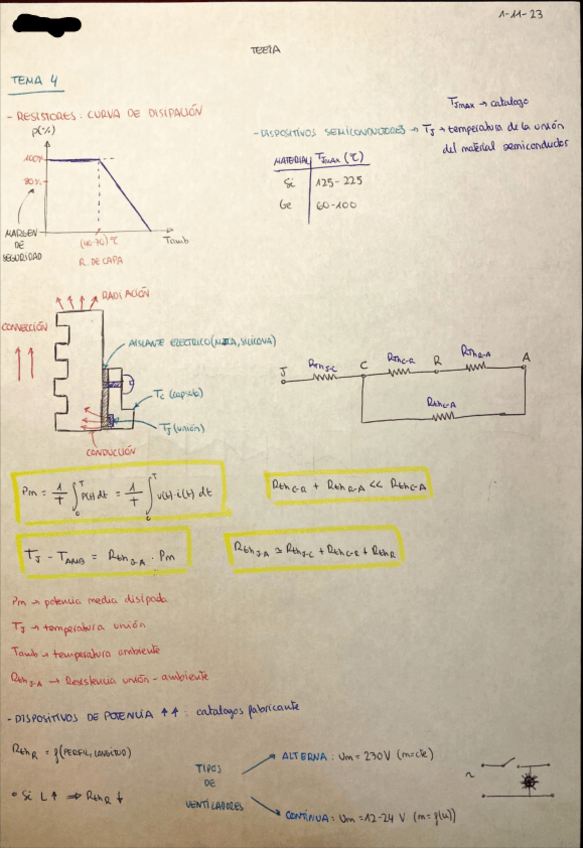 1-11-23
TEEIA
TEMA 4
- RESISTORES: CURVA DE DISIPACIÓN
P(%)
100%
80%
MARGEN
DE
SEGURIDAD
(40-70)ºC
Tamb
R. DE CAPA
TJmax → catalogo
- DISPOSITIVOS SEMICONDUCTORES → TJ → temperatura de la unión
del material semiconductor
MATERIAL TJmax (ºC)
Si 125-225
Ge 60-100
RADIACIÓN
CONVECCIÓN
AISLANTE ELECTRICO (MICA, SILICONA)
Tc (capsula)
TJ (unión)
CONDUCCIÓN
J RthJ-C C RthC-R R RthR-A A
RthC-A
Pm = 1/T ∫₀ᵀ P(t) dt = 1/T ∫₀ᵀ v(t)·i(t) dt
RthC-R + RthR-A << RthC-A
TJ - TAMB = RthJ-A · Pm
RthJ-A ≃ RthJ-C + RthC-R + RthR
Pm → potencia media disipada
TJ → temperatura unión
Tamb → temperatura ambiente
RthJ-A → Resistencia unión - ambiente
- DISPOSITIVOS DE POTENCIA ↑↑ : catalogos fabricante
RthR = f(PERFIL, LONGITUD)
• Si L↑ ⇒ RthR ↓
TIPOS
DE
VENTILADORES
ALTERNA : Um = 230V (m=cte)
CONTÍNUA : Um = 12-24 V (m= f(u))
~